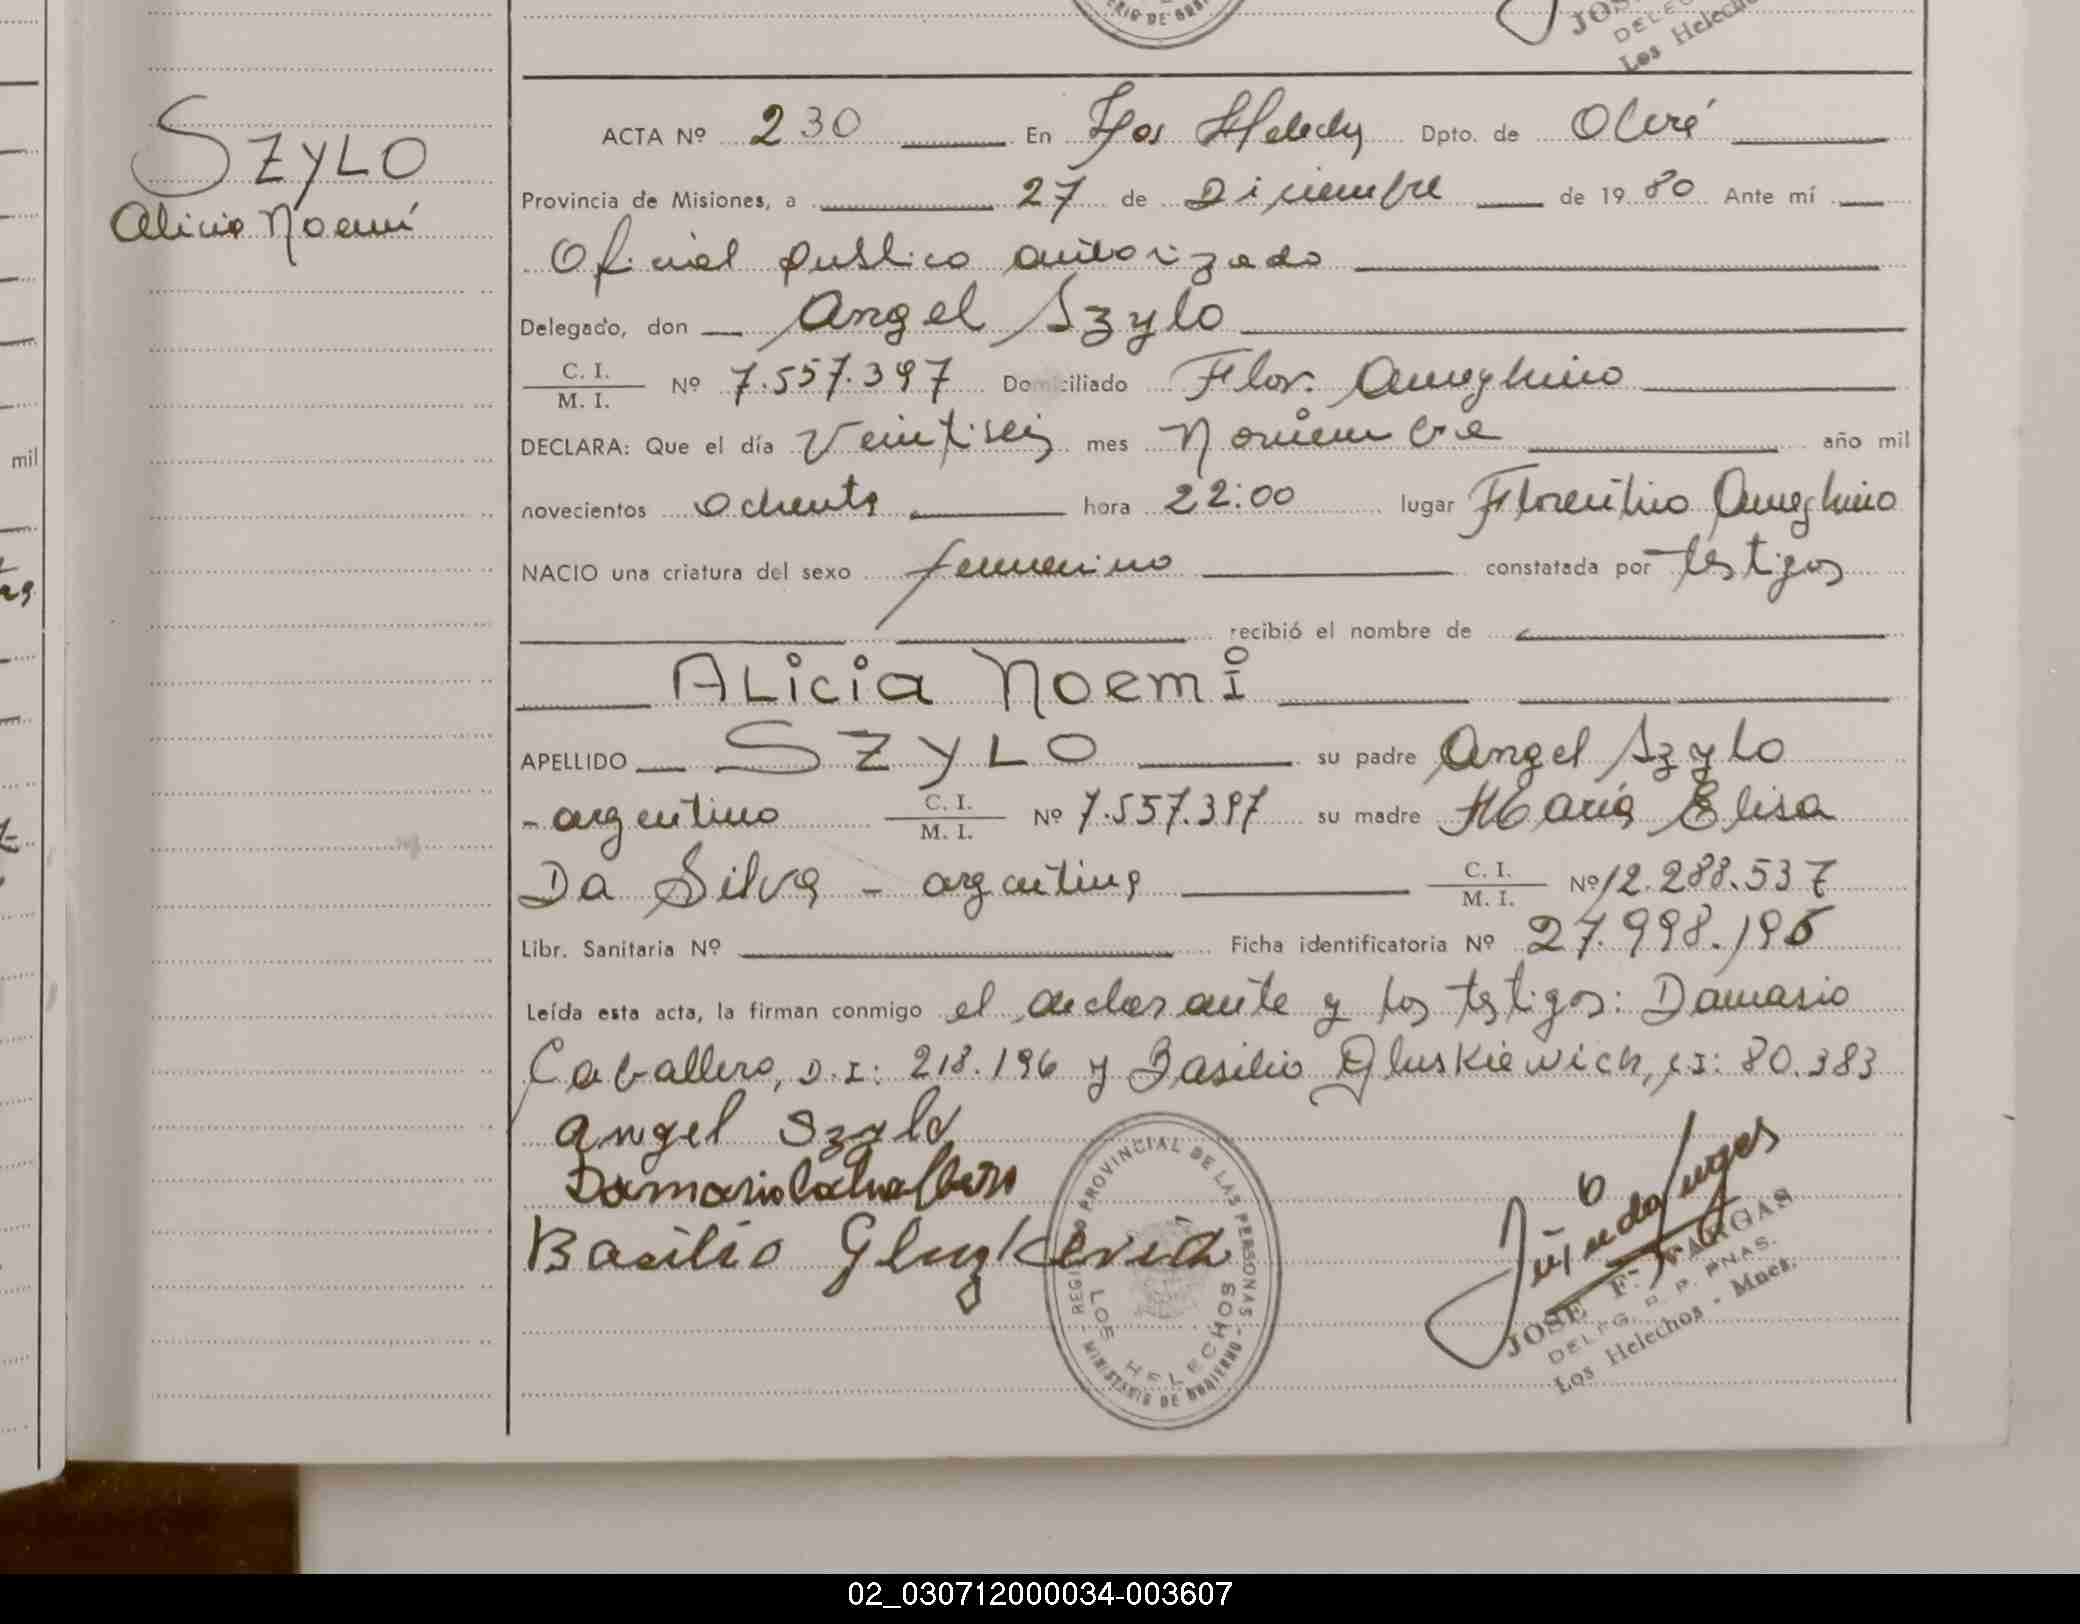 SZYLO
Alicia Noemí
mil
ACTA Nº 230 En Los Helechos Dpto. de Oberá
Provincia de Misiones, a 27 de Diciembre de 1980 Ante mí
Oficial público autorizado
Delegado, don Angel Szylo
C. I.
M. I. Nº 7.557.397 Domiciliado Flor. Ameghino
DECLARA: Que el día Veintiseis mes Noviembre año mil
novecientos ochenta hora 22:00 lugar Florentino Ameghino
NACIO una criatura del sexo femenino constatada por testigos
recibió el nombre de
ALiCiA NOEMI
APELLIDO SZYLO su padre Angel Szylo
- argentino C. I.
M. I. Nº 7.557.397 su madre María Elisa
Da Silva - argentina C. I.
M. I. Nº 12.288.537
Libr. Sanitaria Nº Ficha identificatoria Nº 27.998.195
Leída esta acta, la firman conmigo el declarante y los testigos: Damasio
Caballero, D.I: 218.196 y Basilio Gluskiewich, CI: 80.383
Angel Szylo
Damasio
Basilio
REGISTRO PROVINCIAL DE LAS PERSONAS
LOS HELECHOS
MINISTERIO DE GOBIERNO
JOSE F. VARGAS
DELEG. R. P. PNAS.
Los Helechos - Mnes.
02_030712000034-003607